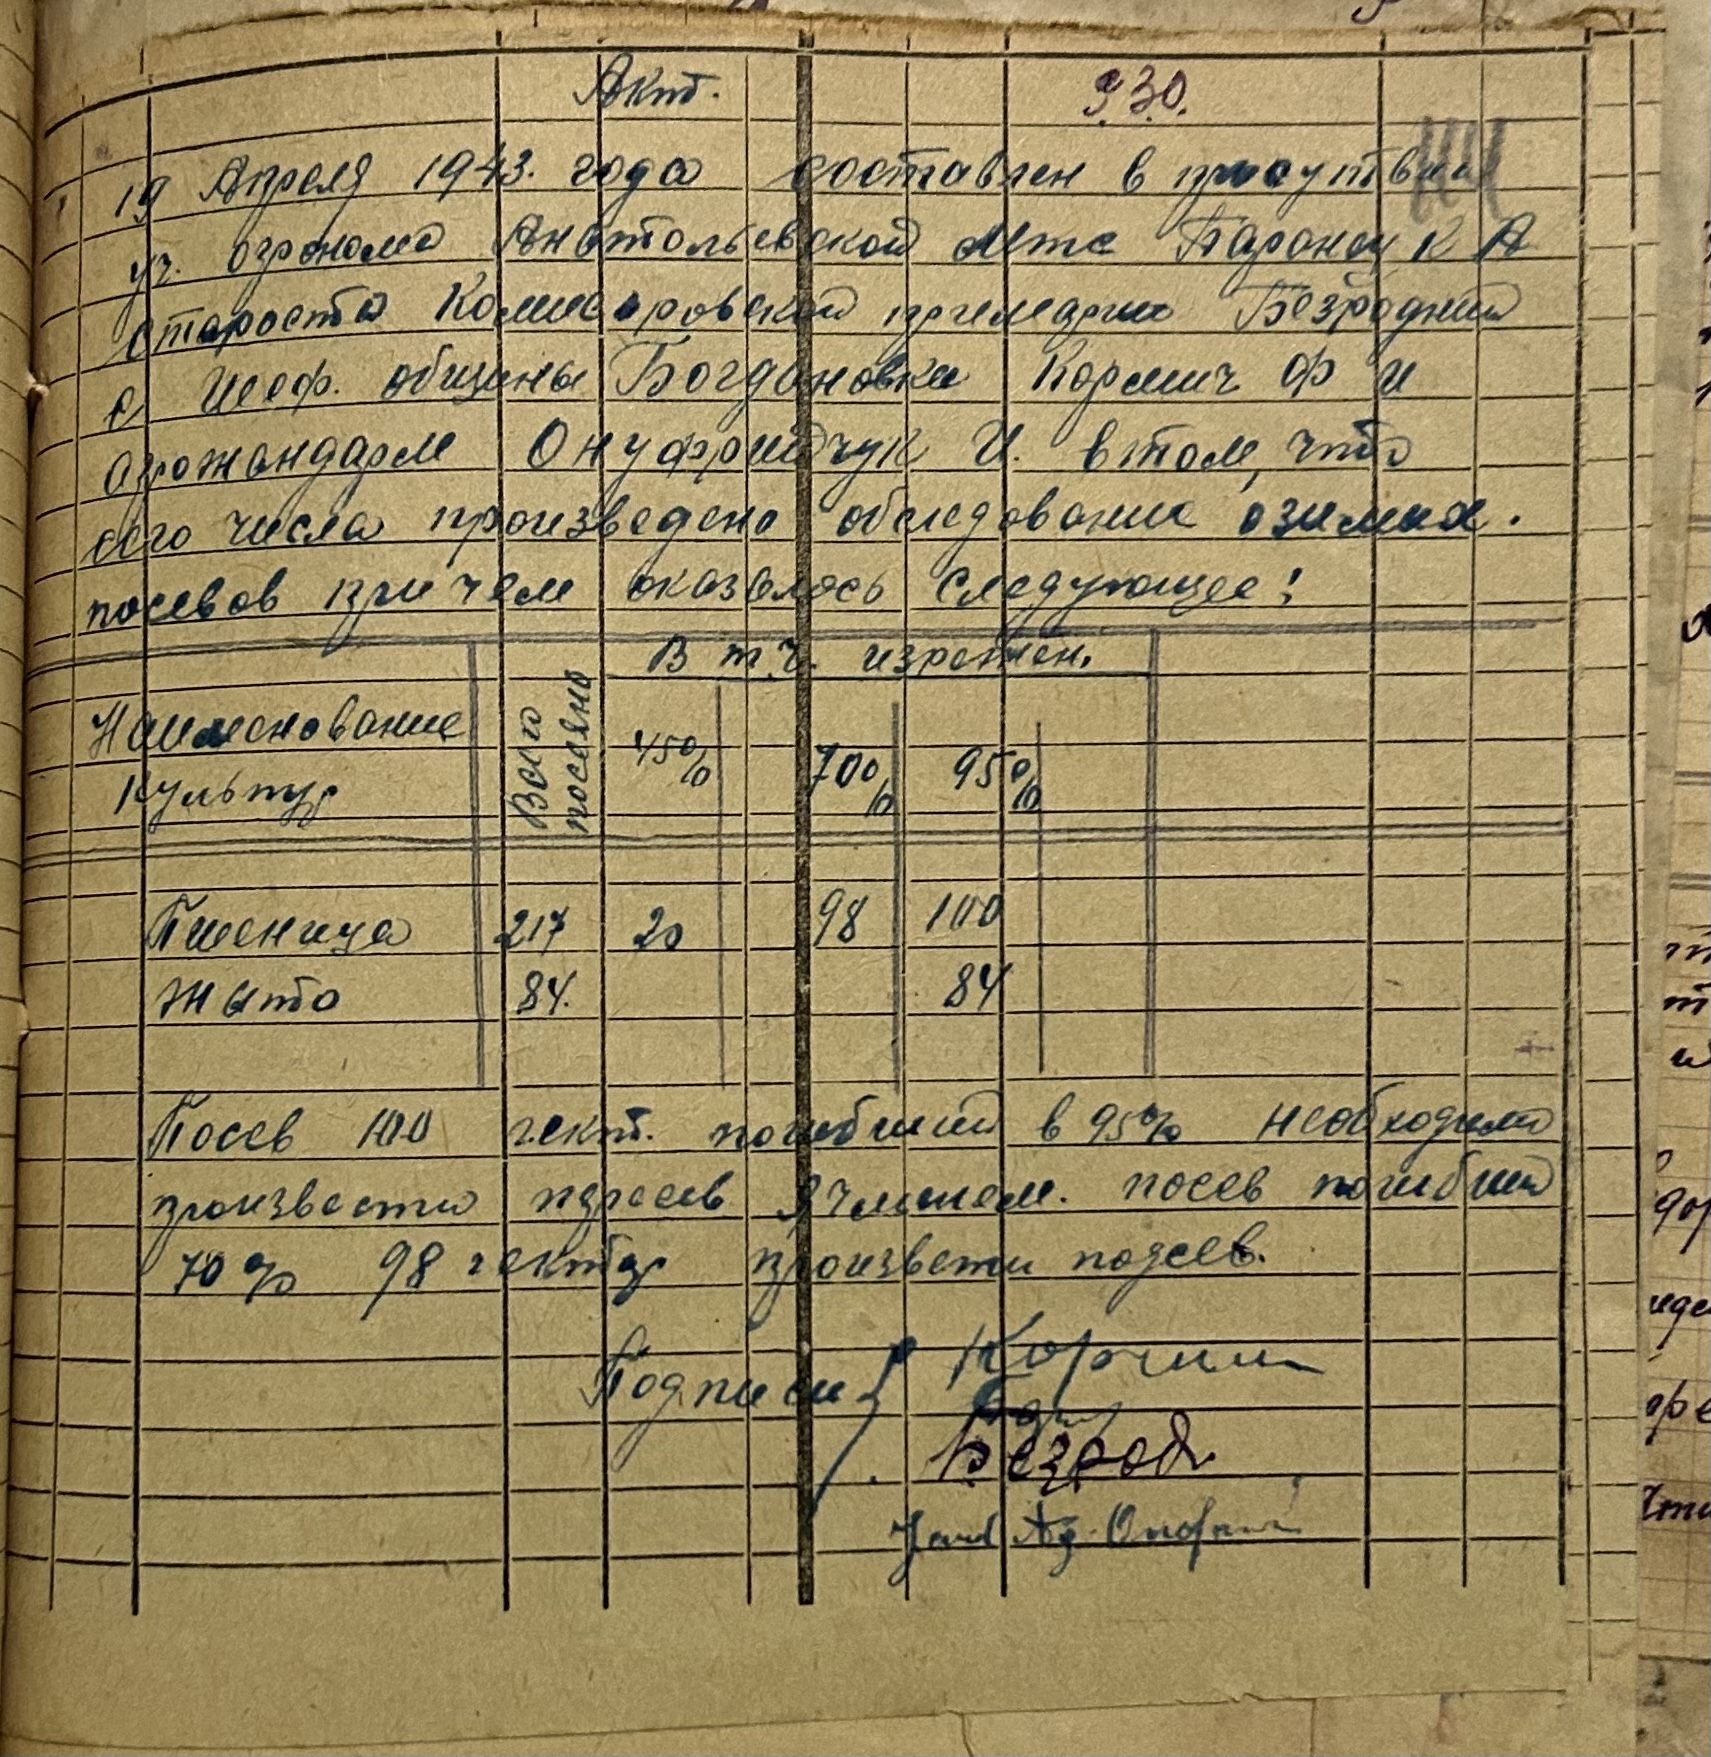 Акт.
930.
19 Апреля 1943. года составлен в присутвии
уч. агронома Анатольевской Мтс К А
староста Комисаровской примарии Безродний
и Шеф. общины Богдановка Кормич Ф И
агрожандарм Онуфрийчук И. в том, что
сего числа произведено обследование озимых.
посевов при чем оказалось следующее:
В т.ч. изрежен.
Наименование
культур
Всего
посеяно
45%
70%
95%
Пшеница 217 20 98 100
Жыто 84. 84
Посев 100 гект. погибший в 95% необходимо
произвести пересев ячменем. посев погибший
70% 98 гектар произвести подсев.
Подписи
Безрод